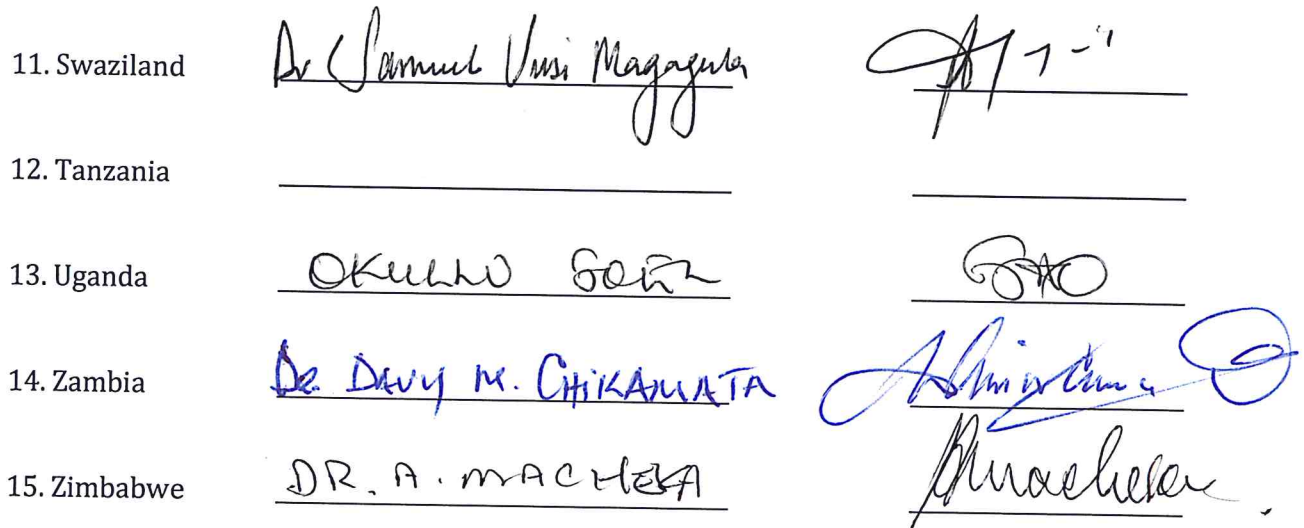 11. Swaziland Dr Samuel Vusi Magagula
12. Tanzania
13. Uganda OKULLO
14. Zambia Dr. DAVY M. CHIKAMATA
15. Zimbabwe DR. A. MACHEKA Amacheka